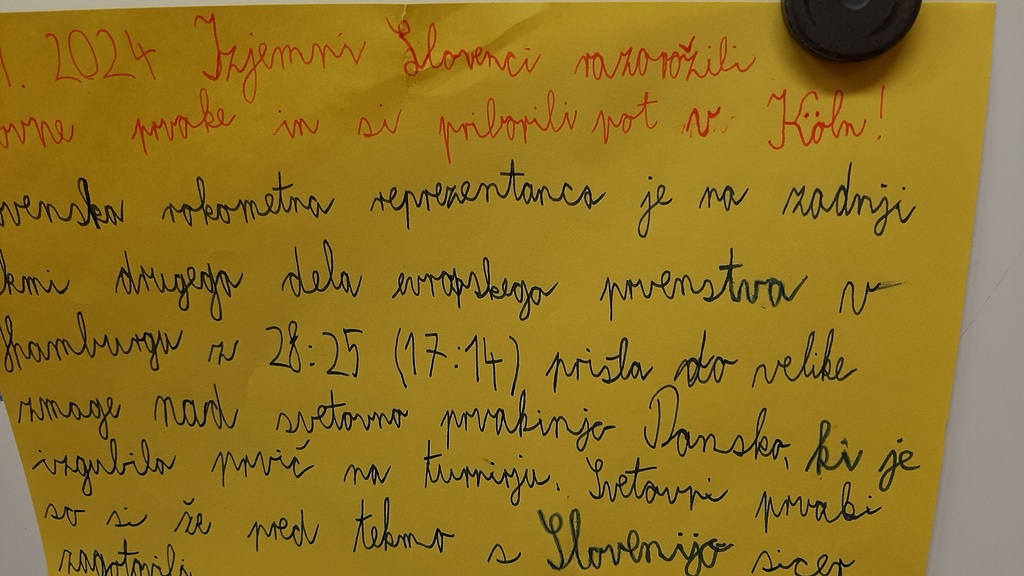 1. 2024 Izjemni Slovenci razorožili
ovne prvake in si priborili pot v Köln!
venska rokometna reprezentanca je na zadnji
kmi drugega dela evropskega prvenstva v
Hamburgu z 28:25 (17:14) prišla do velike
zmage nad svetovno prvakinjo Dansko, ki je
izgubila prvič na turnirju. Svetovni prvaki
so si že pred tekmo s Slovenijo sicer
zagotovili